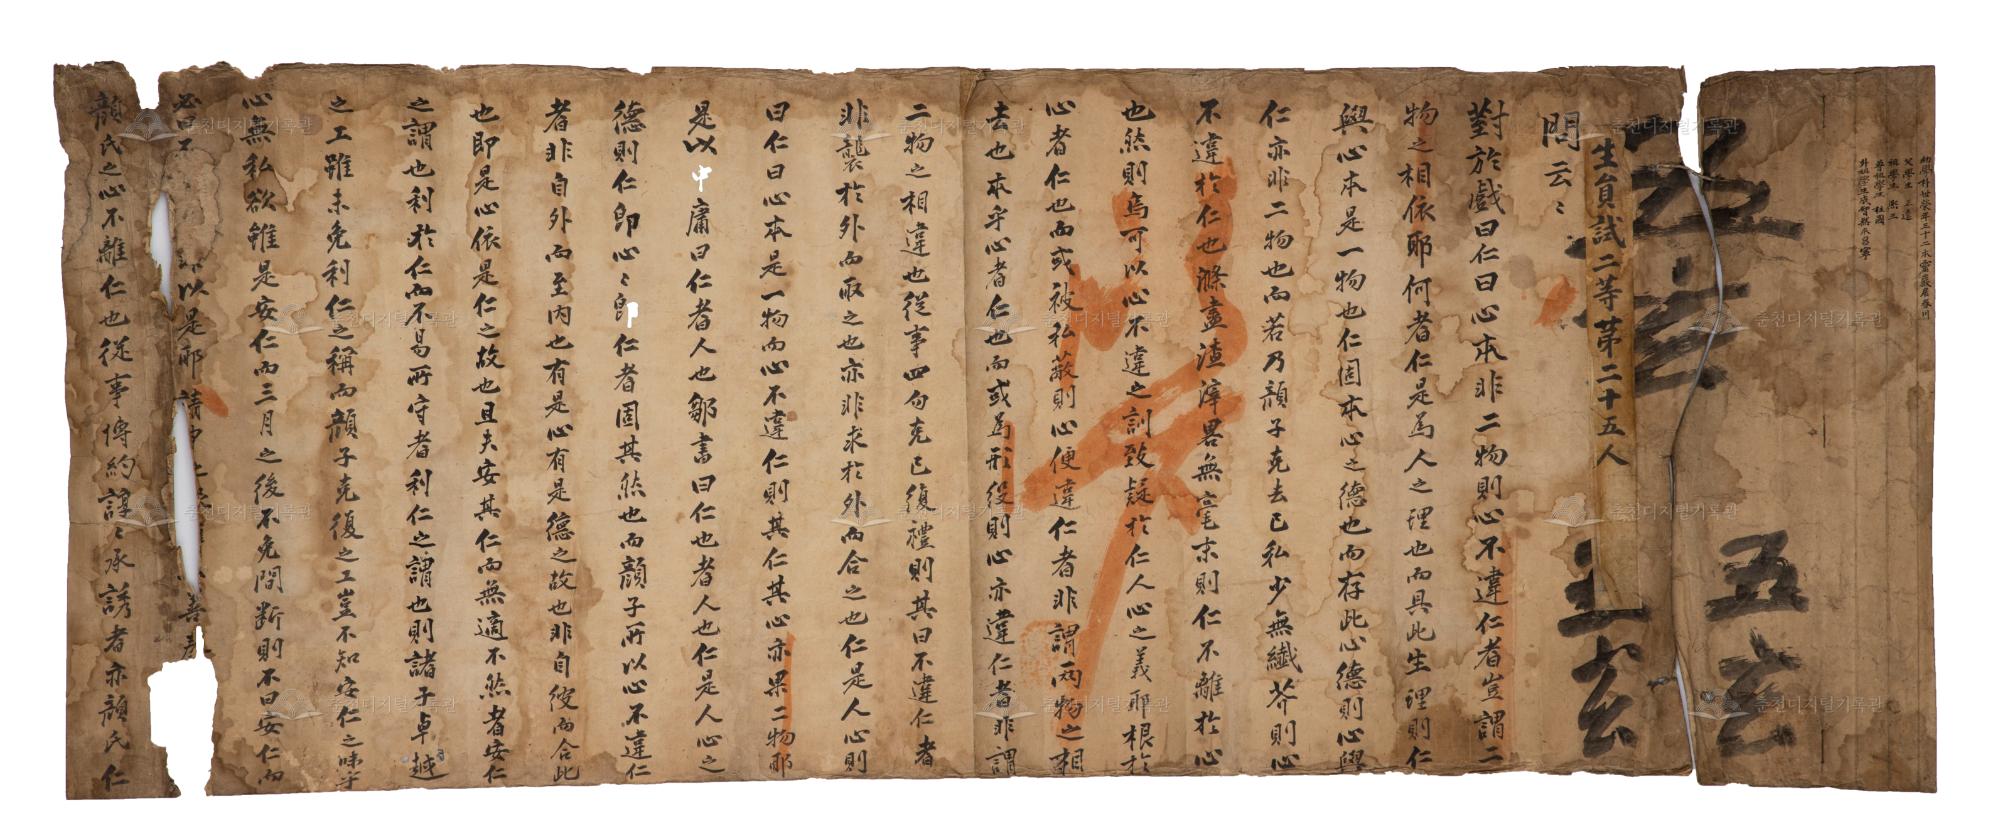 幼學朴世榮年三十二本靈巖居春川
父學生 三達
祖學生
曾祖學生 枉國
外祖學生成智興本昌寧
五玄
五玄
生員試二等第二十五人
問云〻
對於戱曰仁曰心本非二物則心不違仁者豈謂二
物之相依耶何者仁是爲人之理也而具此生理則仁
與心本是一物也仁固本心之德也而存此心德則心與
仁亦非二物也而若乃顔子克去己私少無纖芥則心
不違於仁也滌盡渣滓畧無毫末則仁不離於心
也然則焉可以心不違之訓致疑於仁人心之義耶根於
心者仁也而或被私蔽則心便違仁者非謂兩物之相
去也本乎心者仁也而或爲形役則心亦違仁者非謂
二物之相違也從事四勿克己復禮則其曰不違仁者
非襲於外而取之也亦非求於外而合之也仁是人心則
曰仁曰心本是一物而心不違仁則其仁其心亦果二物耶
是以中庸曰仁者人也鄒書曰仁也者人也仁是人心之
德則仁卽心〻卽仁者固其然也而顔子所以心不違仁
者非自外而至內也有是心有是德之故也非自彼而合此
也卽是心依是仁之故也且夫安其仁而無適不然者安仁
之謂也利於仁而不易所守者利仁之謂也則諸子卓越
之工雖未免利仁之稱而顔子克復之工豈不知安仁之味乎
心無私欲雖是安仁而三月之後不免間斷則不曰安仁而
必曰不 以是耶請申 善
顔氏之心不離仁也從事博約諄〻承誘者亦顔氏仁
춘천디지털기록관